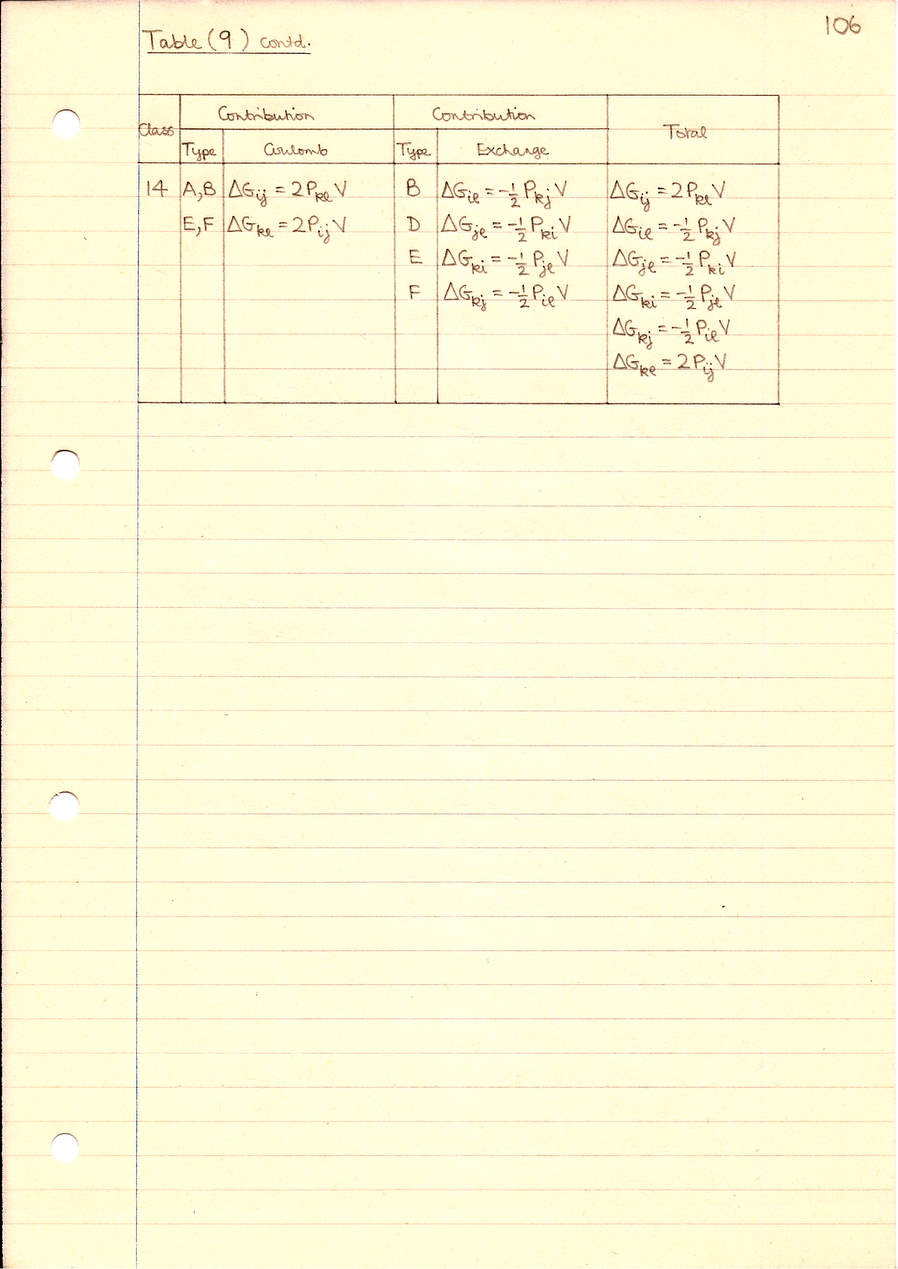 106
Table (9) contd.
Class Contribution Contribution Total
Type Coulomb Type Exchange
14 A,B ΔG_ij = 2P_kℓ V B ΔG_iℓ = -½ P_kj V ΔG_ij = 2P_kℓ V
E,F ΔG_kℓ = 2P_ij V D ΔG_jℓ = -½ P_ki V ΔG_iℓ = -½ P_kj V
E ΔG_ki = -½ P_jℓ V ΔG_jℓ = -½ P_ki V
F ΔG_kj = -½ P_iℓ V ΔG_ki = -½ P_jℓ V
ΔG_kj = -½ P_iℓ V
ΔG_kℓ = 2P_ij V